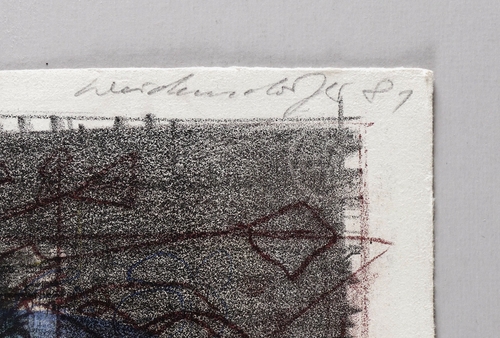 Weidensdorfer 81